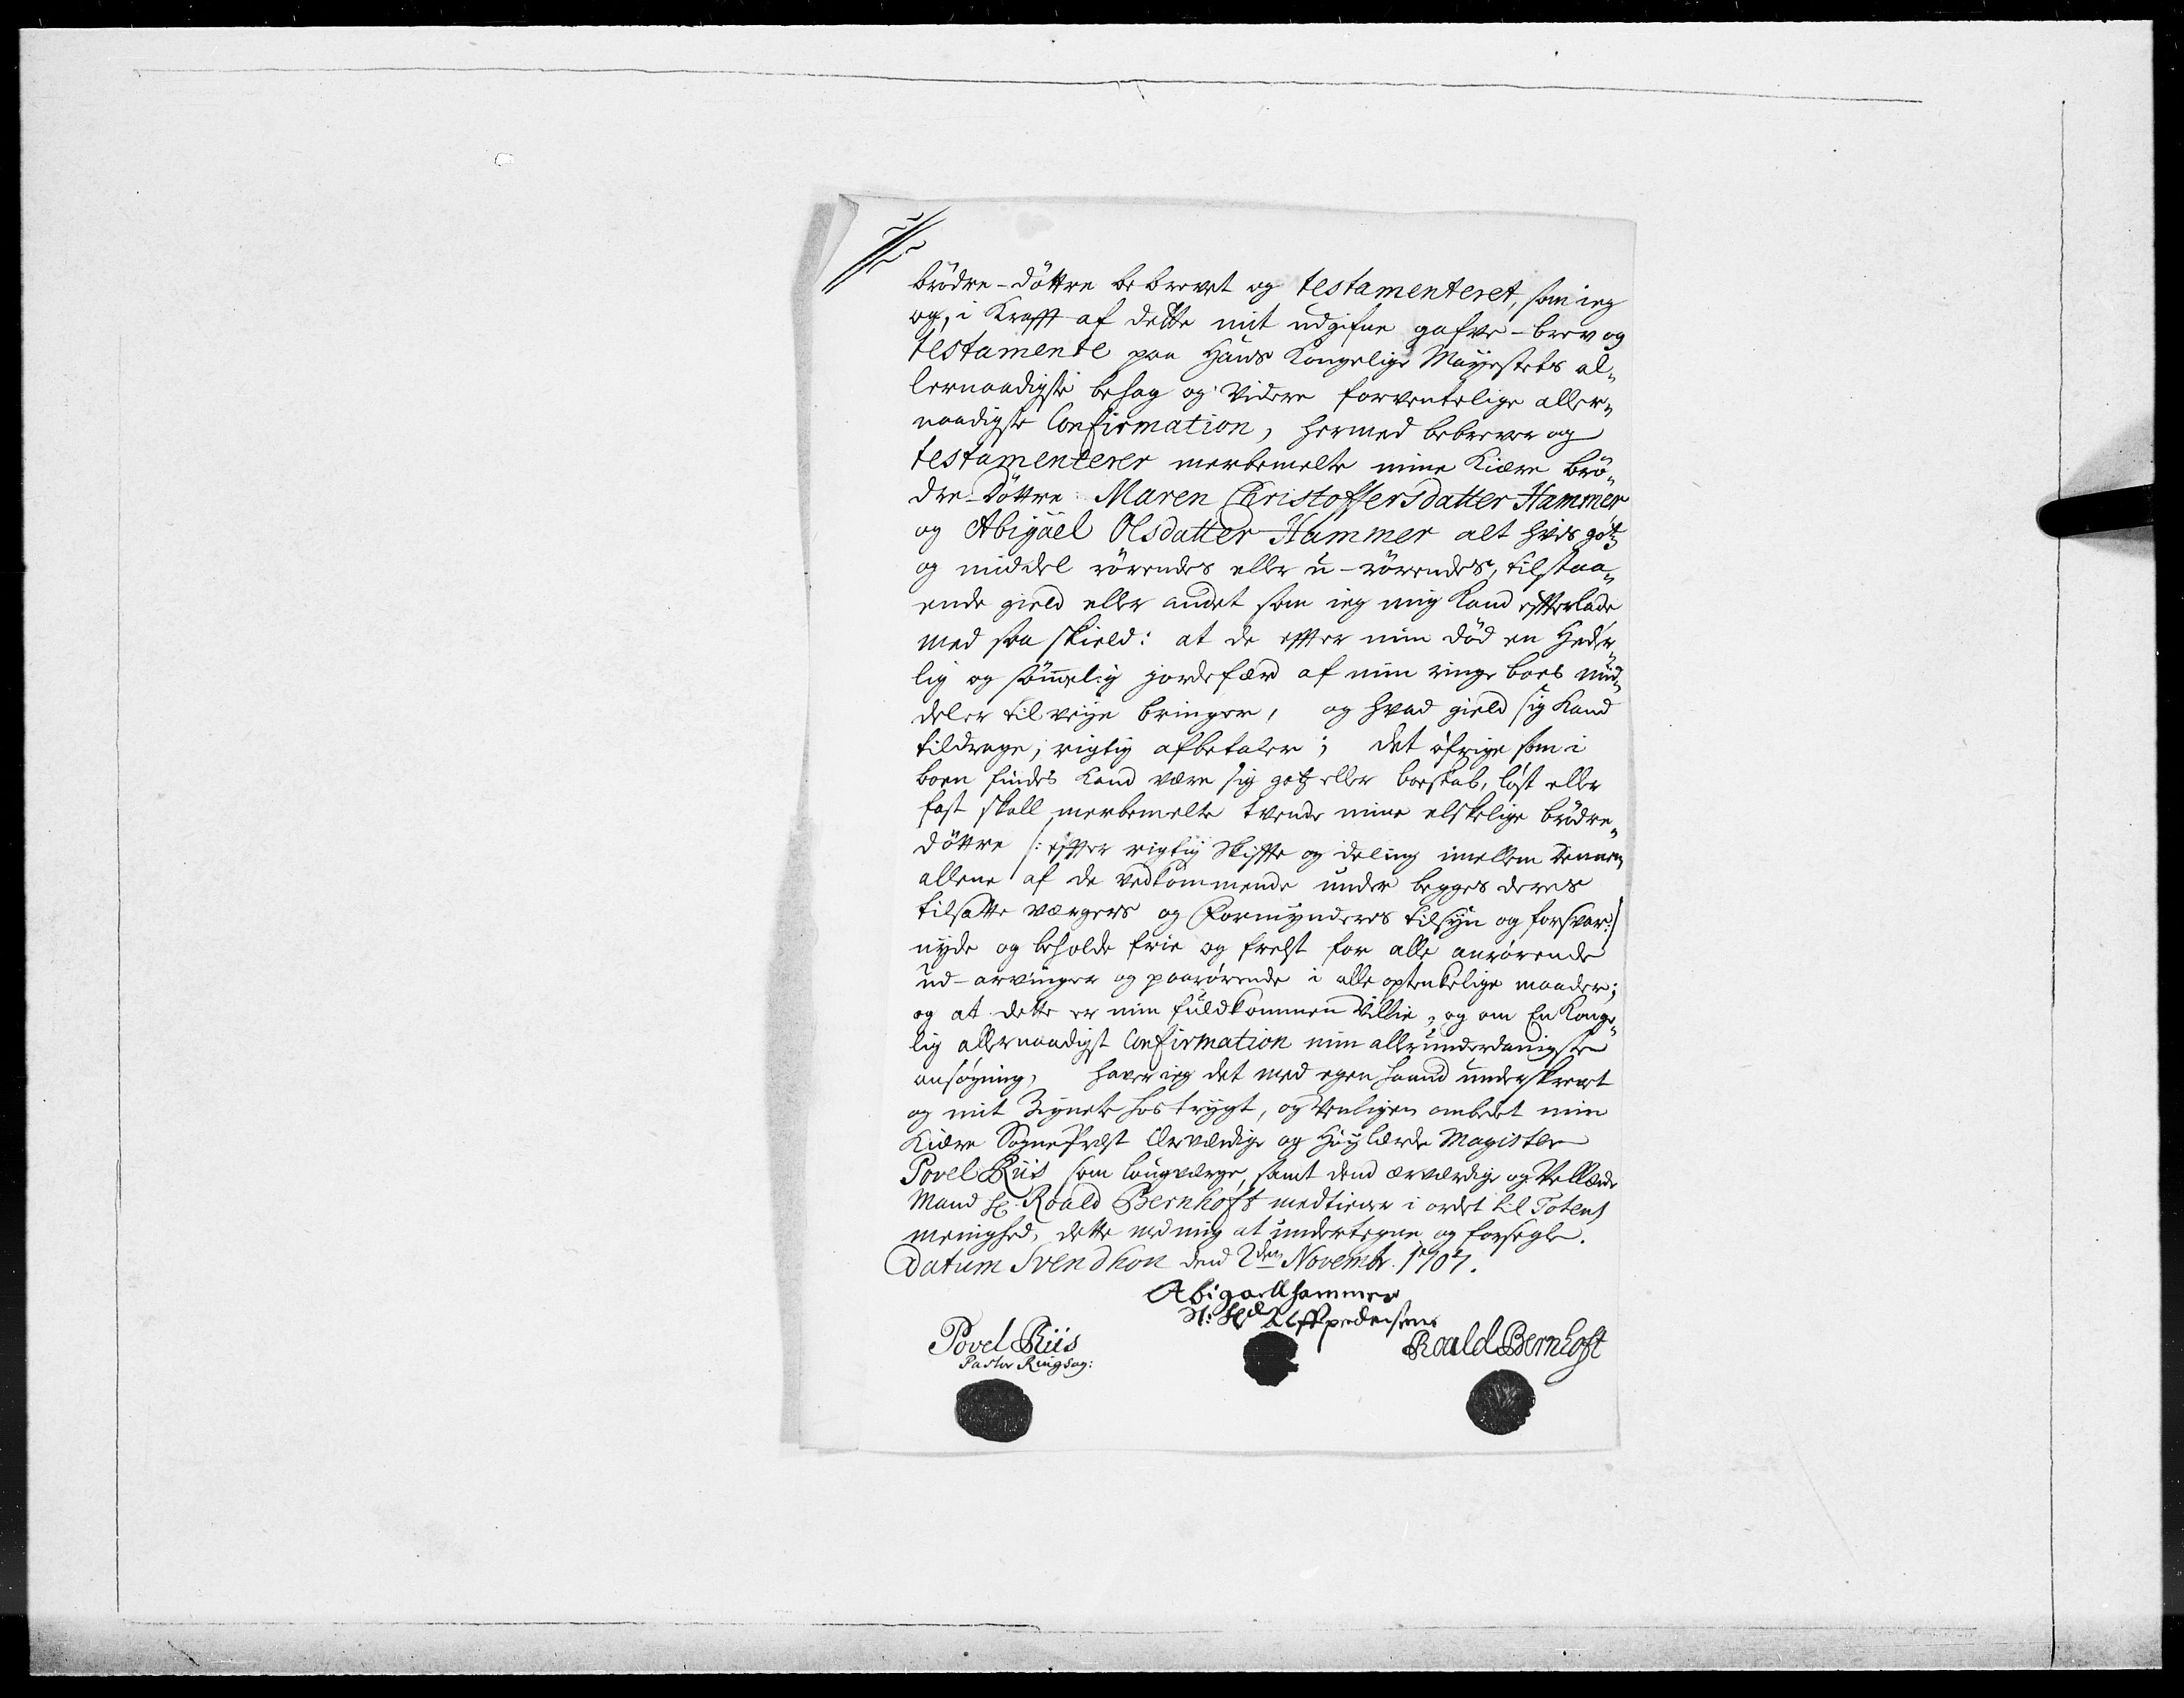 brödre-döttre bebrevet og testamenteret, som ieg
og, i Krafft af dette mit udgifne gafve-brev og
testamente paa Hans Kongelige Mayestets al„
lernaadigste behag og videre forventelige aller„
naadigste Confirmation, hermed bebrever og
testamenterer merbemelte mine Kiære brö„
dre-Döttre Maren Christoffersdatter Hammer
og Abigäel Olsdatter Hammer alt hvis gotz
og middel rörendes eller u-rörendes, tilstaa„
ende gield eller andet som ieg mig kand efterlade
med saa skield: at de effter min död en Heder„
lig og sömmelig jordefærd af min ringe boes mid„
deler til veije bringer, og hvad gield sig kand
tildrage, rigtig afbetaler; det öfrige som i
boen findes kand være sig gotz eller boeskab, löst eller
fast skall merbemelte tvende mine elskelige brödre„
döttre /: effter rigtig Skiffte og deling imellem dennem
allene af de vedkommende under begges deres
tilsatte værgers og Formynderes tilsyn og forsvar:/
nyde og beholde frie og frelst for alle anrörende
ud-arvinger og paarörende i alle optenkelige maader;
og at dette er min fuldkommen Villie, og om En Konge„
lig allernaadigst Confirmation min allerunderdanigste
ansögning, haver ieg det med egen haand underskrevet
og mit Zignete hos trygt, og venligen ombedet min
Kiære SognePrest Ærværdige og Höylærde Magister
Povel Riis som laugværge, samt dend ærværdige og Vellærde
Mand Hr. Roald Bernhoft medtiener i ordet til Totens
menighed, dette med mig at undertegne og forsegle.
Datum Svendhon dend 2den Novembr. 1707.
Abigaell hammer
Sl: Hr
Povel Riis
Roald Bernhoft
Pastor Ringsag: